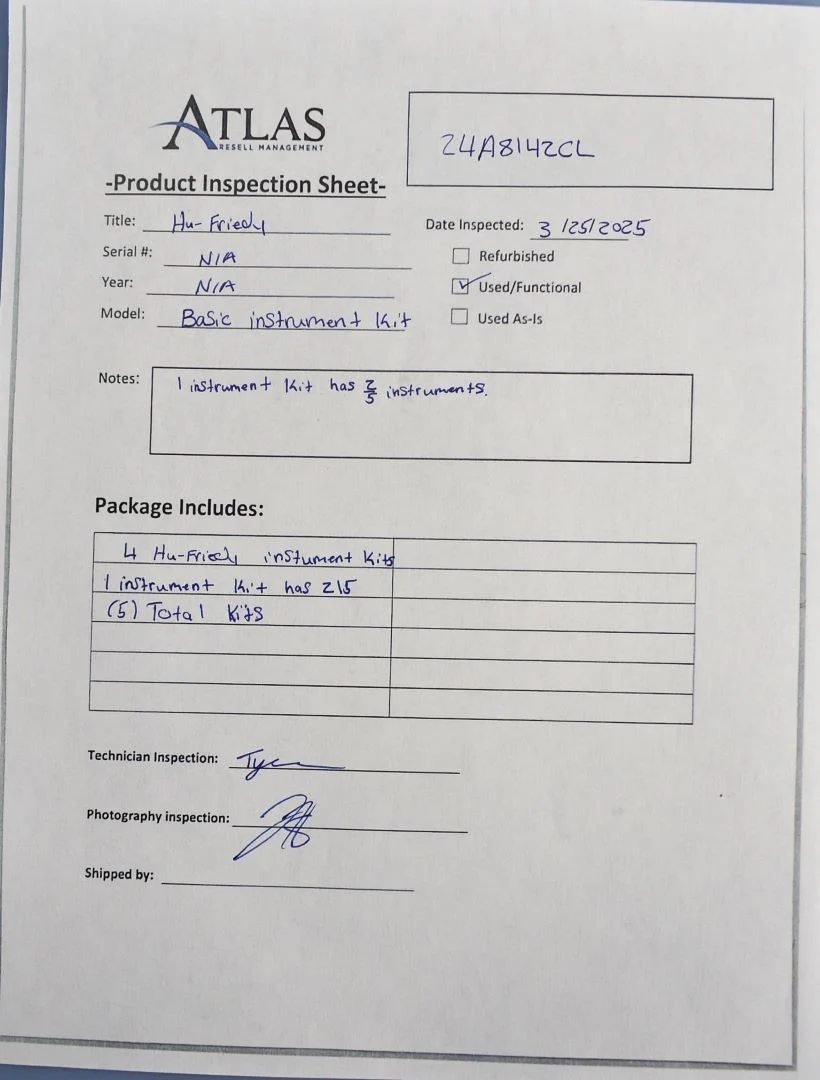 ATLAS
RESELL MANAGEMENT
24A8142CL
-Product Inspection Sheet-
Title: Hu-Friedy
Date Inspected: 3/25/2025
Serial #: N/A
Refurbished
Year: N/A
Used/Functional
Model: Basic instrument Kit
Used As-Is
Notes: 1 instrument Kit has 2/5 instruments.
Package Includes:
4 Hu-Friedy instument Kits
1 instrument Kit has 2/5
(5) Total Kits
Technician Inspection:
Photography inspection:
Shipped by: